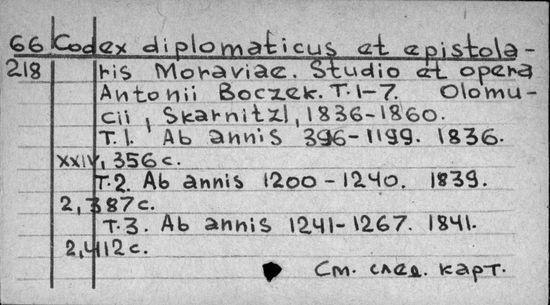 66 Codex diplomaticus et epistola-
218 ris Moraviae. Studio et opera
Antonii Boczek. T. 1-7. Olomu-
cii, Skarnitzl, 1836-1860.
T. 1. Ab annis 396-1199. 1836.
XXIV, 356 с.
T. 2. Ab annis 1200-1240. 1839.
2, 387 с.
T. 3. Ab annis 1241-1267. 1841.
2, 412 с.
См. след. карт.